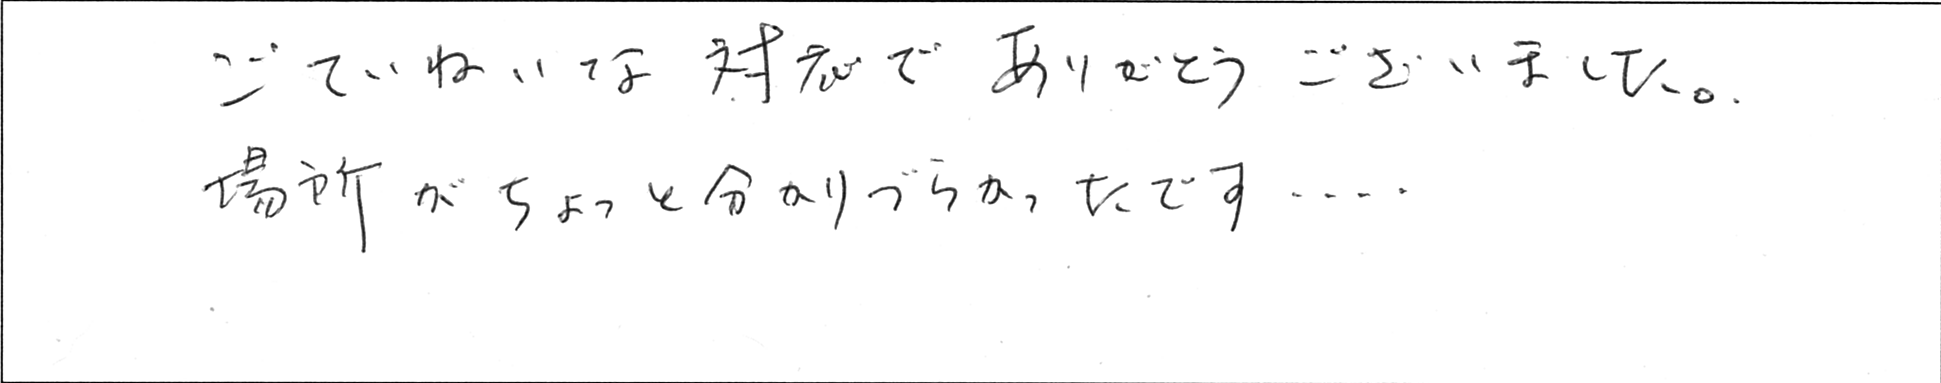 ごていねいな対応でありがとうございました。
場所がちょっと分かりづらかったです.....